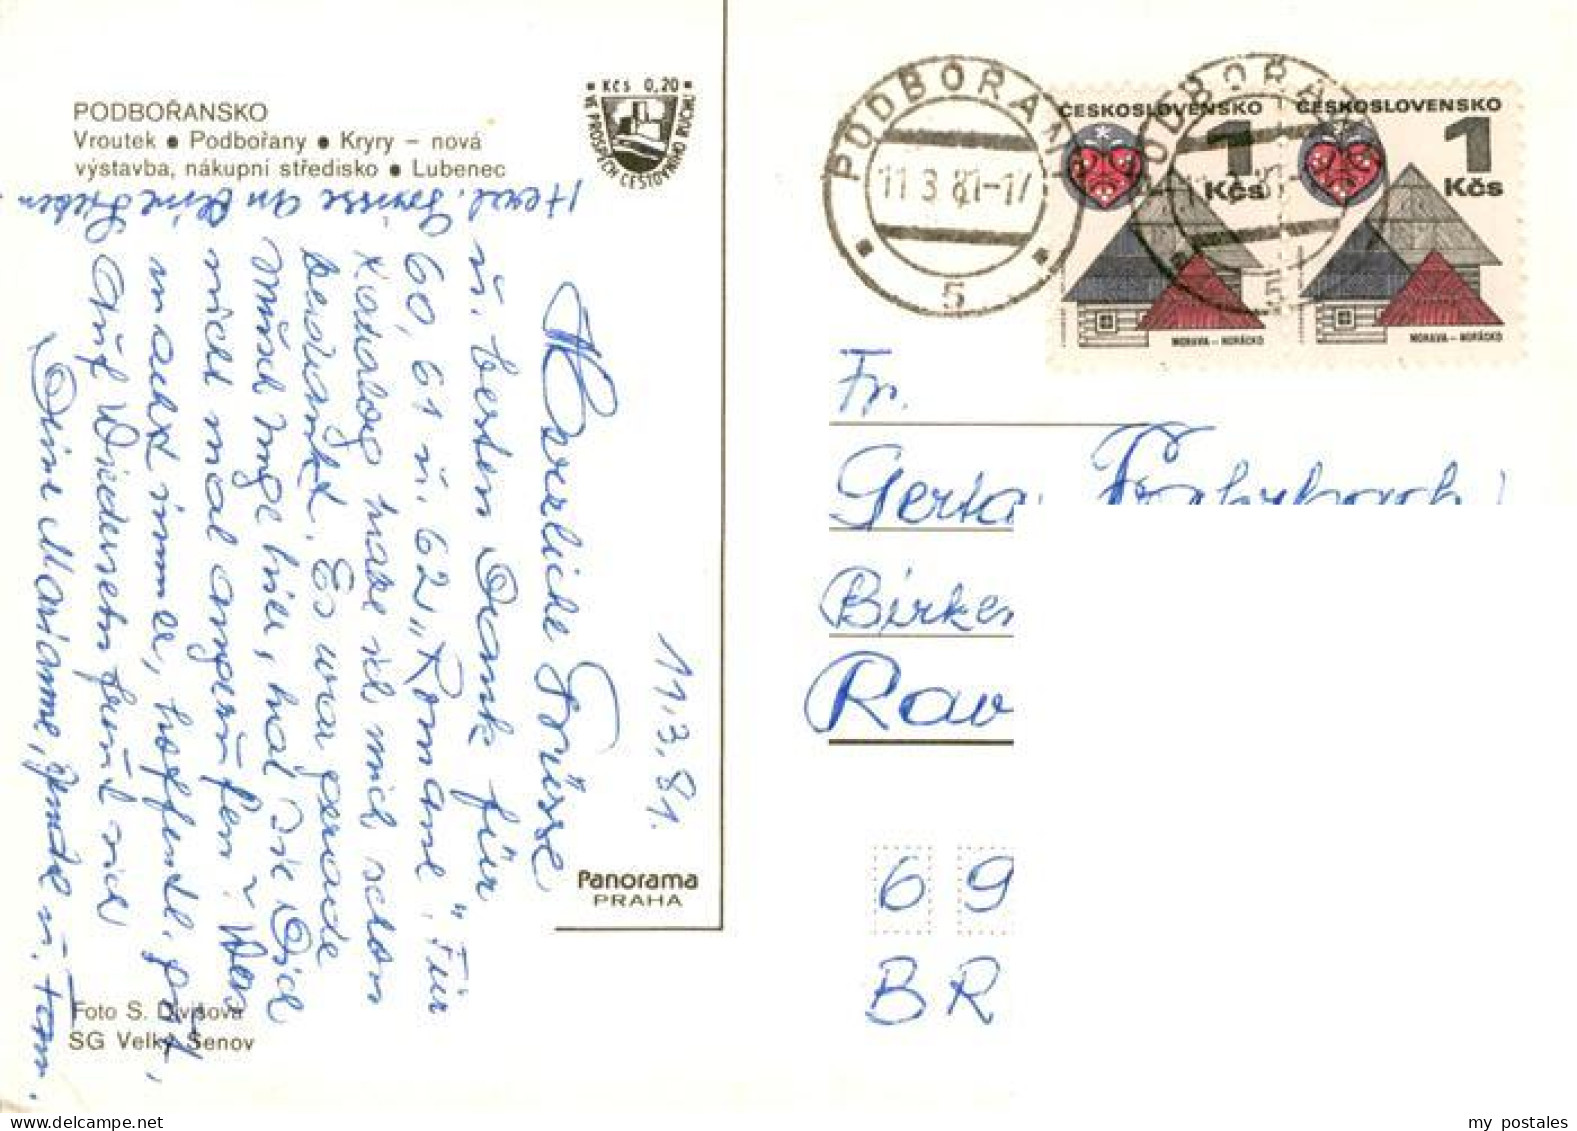 PODBOŘANSKO
Vroutek ● Podbořany ● Kryry – nová
výstavba, nákupní středisko ● Lubenec
Kčs 0,20
VE PROSPĚCH CESTOVNÍHO RUCHU
11.3.81.
Herzliche Grüsse
u. besten Dank für
60, 61 u. 62 „Romane." Für
Katalog habe ich mich schon
bedankt. Es war gerade
hier, hat sie Dich
nicht mal angerufen? Was
macht immer, hoffentl. gut,
Auf Wiedersehn freut sich
Deine Marianne, u. Tom.
Herzl. Grüsse an Deine Lieben
Panorama
PRAHA
Foto S. Divišová
SG Velký Šenov
PODBOŘANY
11 3 81-17
5
PODBOŘANY
5
ČESKOSLOVENSKO
1
Kčs
MORAVA – HORÁCKO
ČESKOSLOVENSKO
1
Kčs
MORAVA – HORÁCKO
Fr.
Gerta
Birken
Rav
6 9
BR
my postales